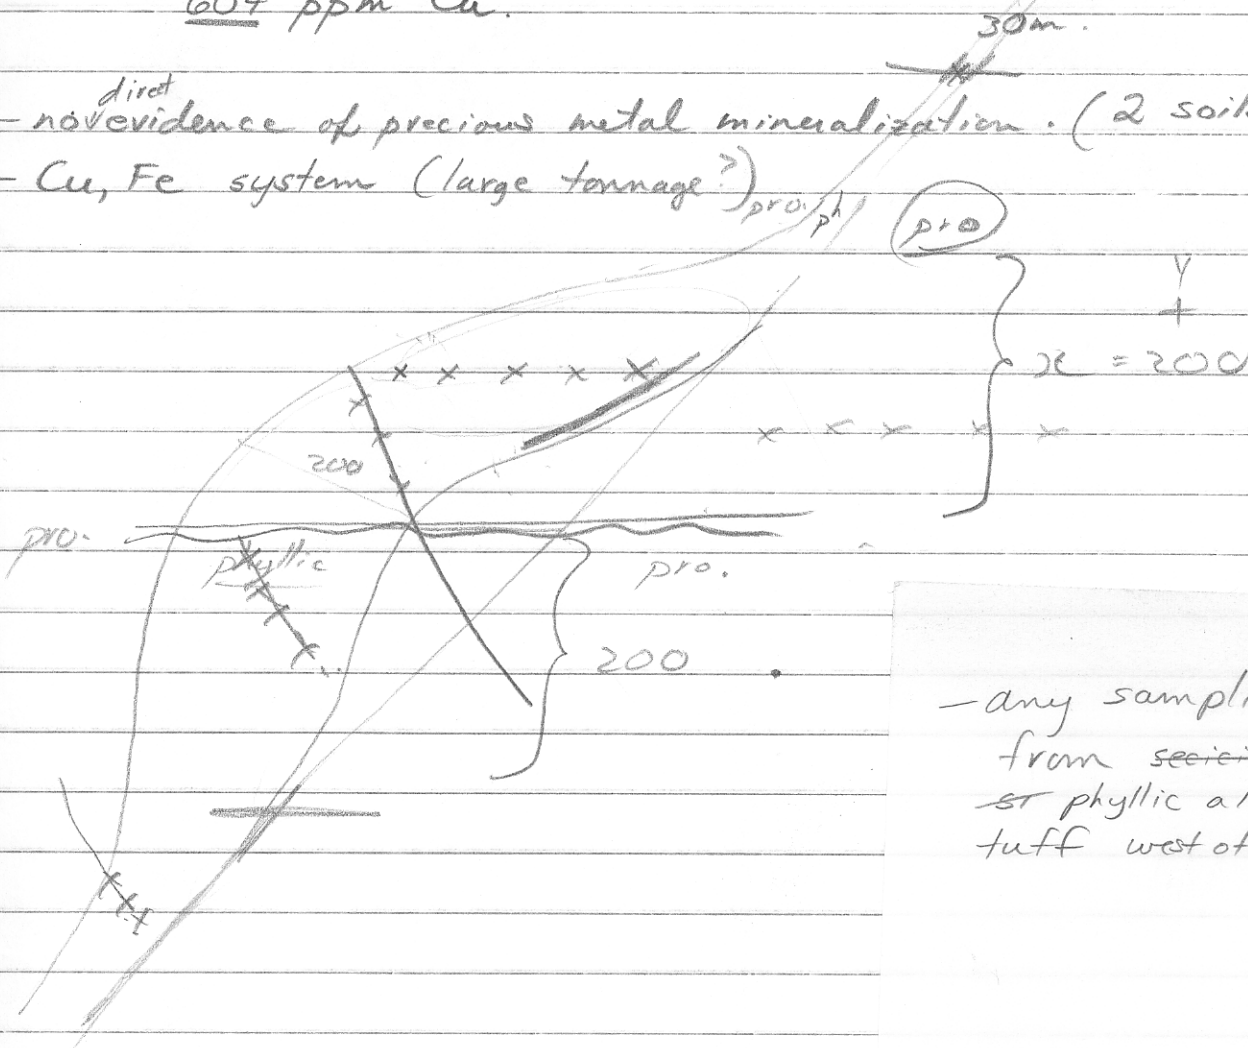 604 ppm Cu.
30m.
direct
- no evidence of precious metal mineralization. (2 soil
- Cu, Fe system (large tonnage?)
pro. ph
pro
x = 200
200
pro.
phyllic
pro.
200
- any sampl
from
phyllic al
tuff west of